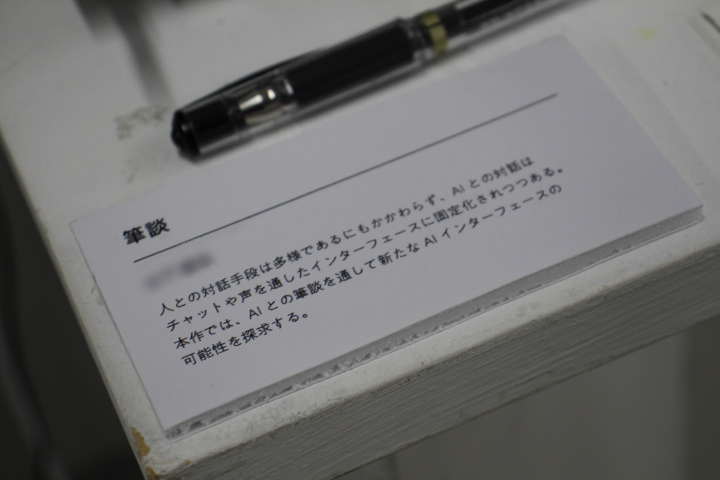 筆談
人との対話手段は多様であるにもかかわらず、AI との対話は
チャットや声を通したインターフェースに固定化されつつある。
本作では、AI との筆談を通して新たな AI インターフェースの
可能性を探求する。